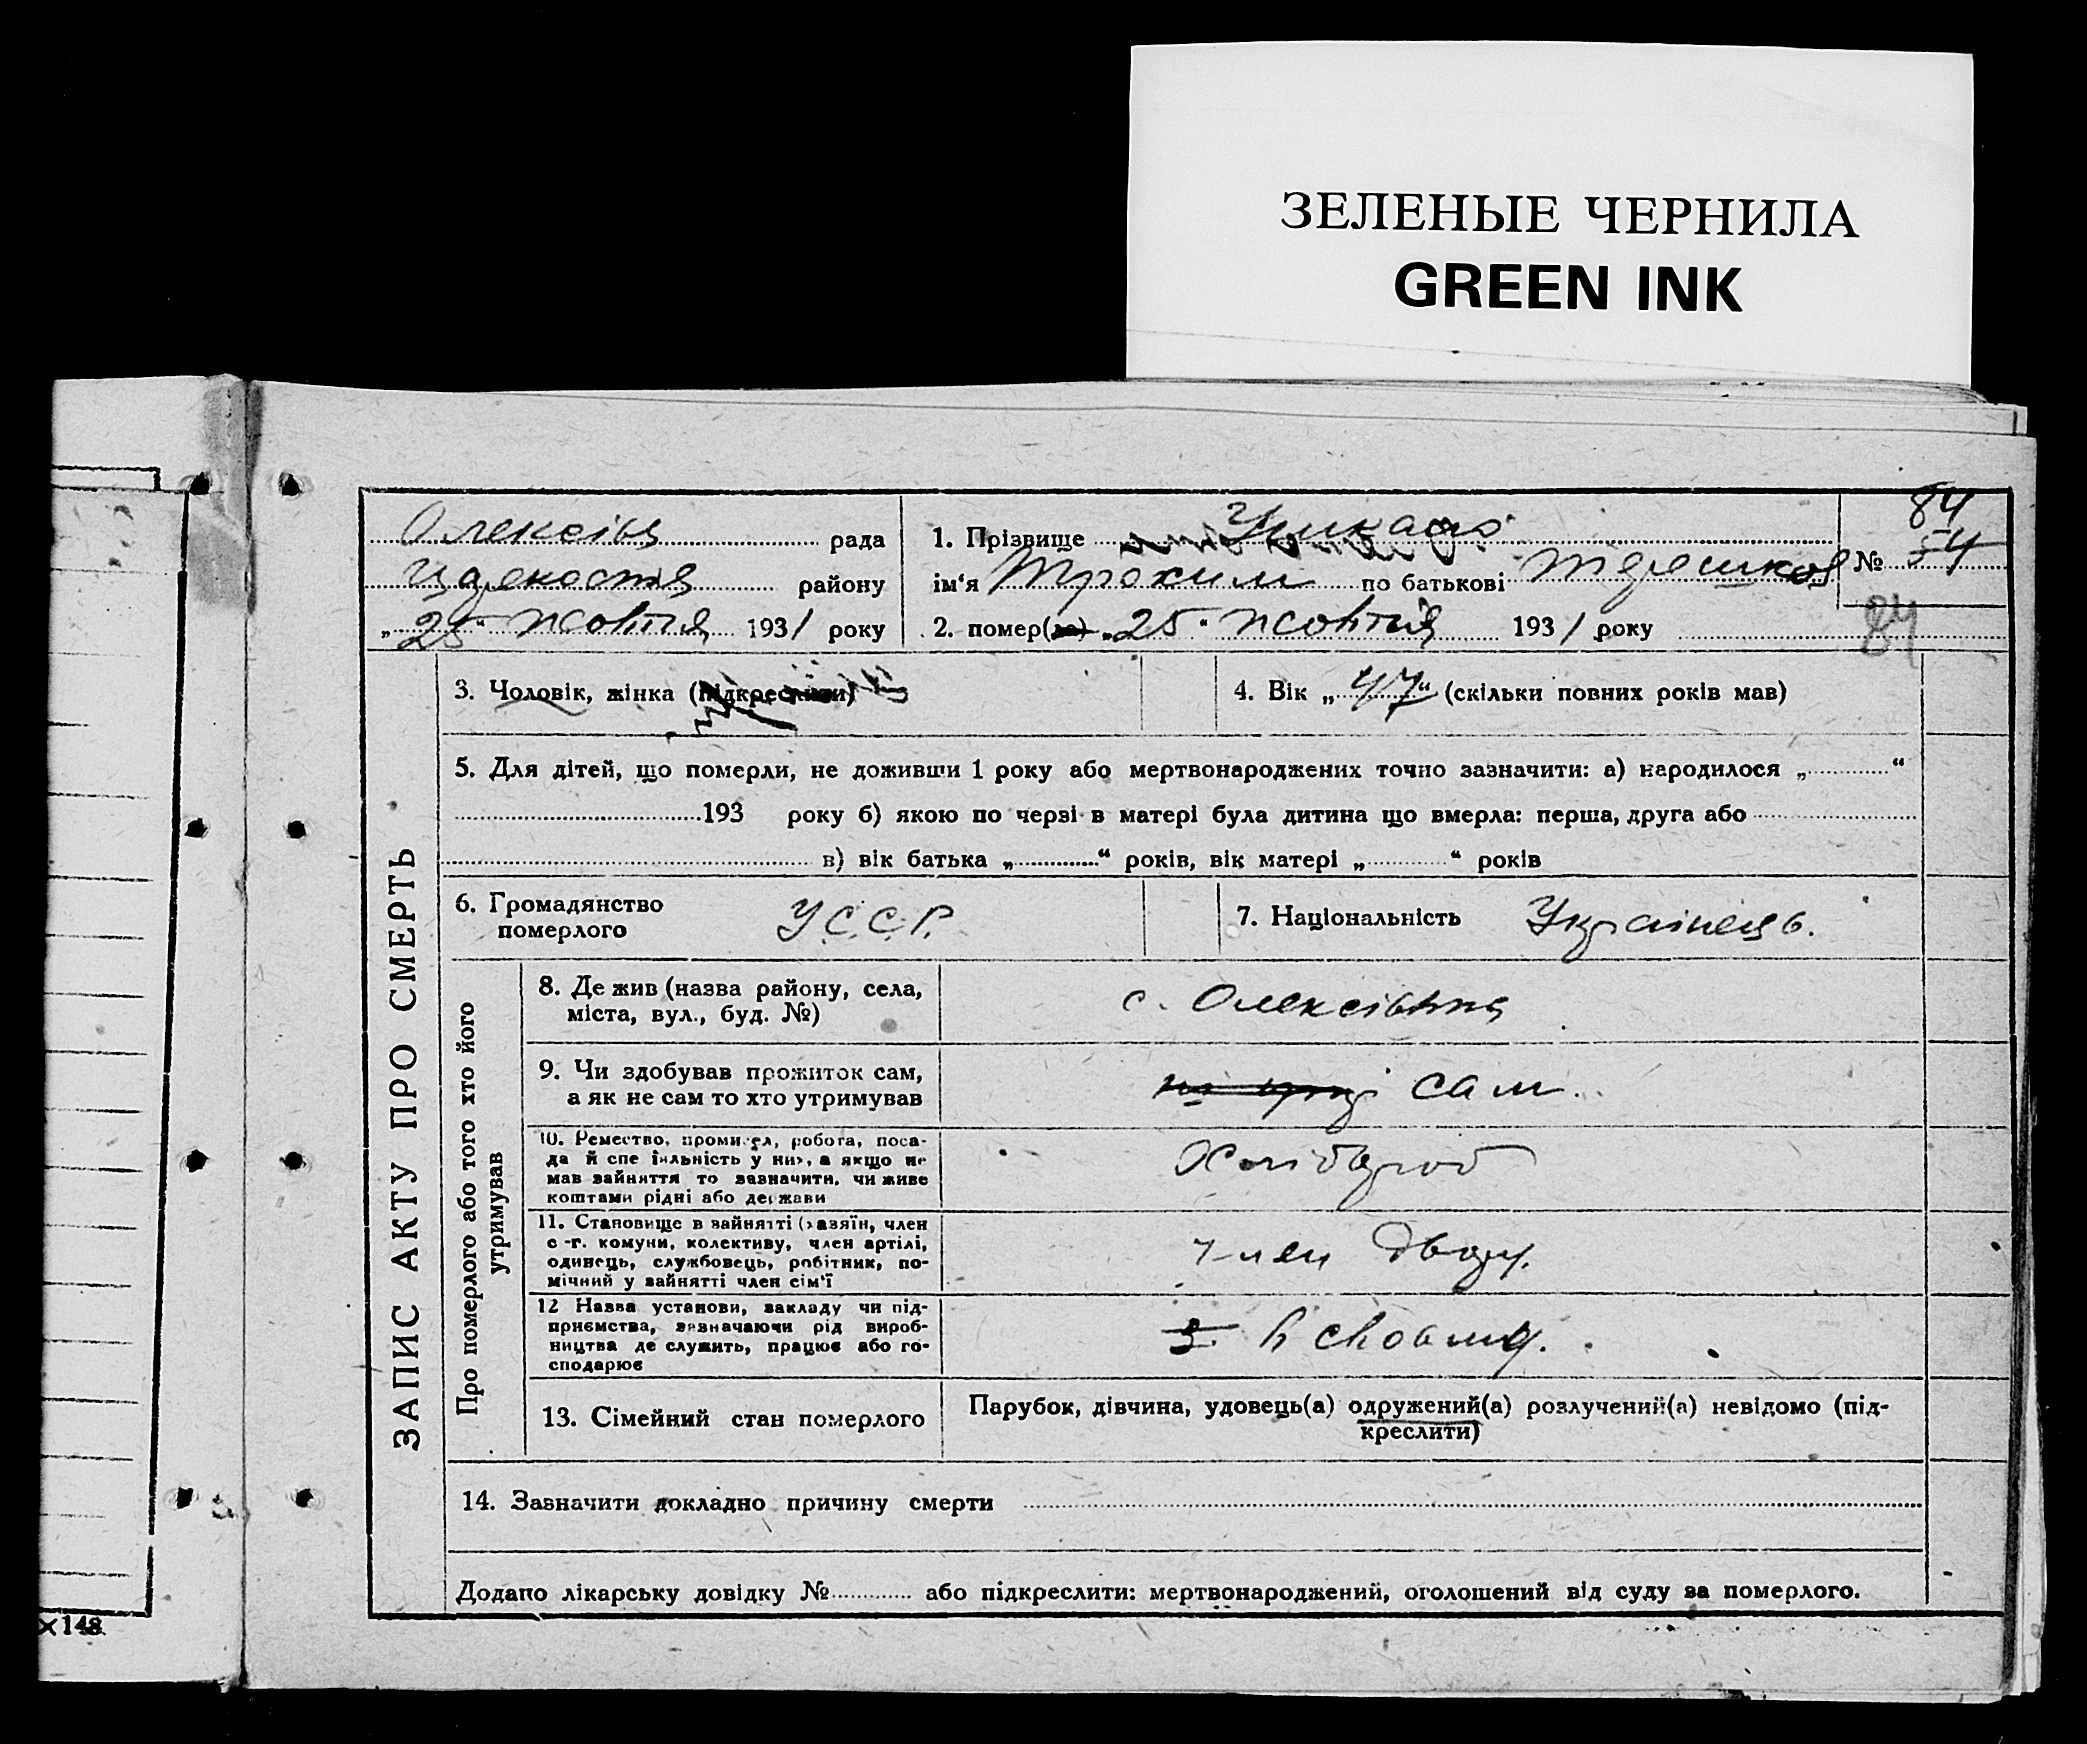 ЗЕЛЕНЫЕ ЧЕРНИЛА
GREEN INK
84
Олексіїв рада
району
„25“ жовтня 1931 року
1. Прізвище
ім‘я Трохим по батькові
2. помер(ла) „25“ жовтня 1931 року
№ 54
84
ЗАПИС АКТУ ПРО СМЕРТЬ
3. Чоловік, жінка (підкреслити)
4. Вік „47“ (скільки повних років мав)
5. Для дітей, що померли, не доживши 1 року або мертвонароджених точно зазначити: а) народилося „ “
193 року б) якою по черзі в матері була дитина що вмерла: перша, друга або
в) вік батька „ “ років, вік матері „ “ років
6. Громадянство
померлого
У.С.С.Р.
7. Національність Українець.
Про померлого або того хто його
утримував
8. Де жив (назва району, села,
міста, вул., буд. №)
с. Олексіївка
9. Чи здобував прожиток сам,
а як не сам то хто утримував
сам.
10. Ремество, промисел, робота, поса-
да й спеціяльність у них, а якщо не
мав зайняття то зазначити, чи живе
коштами рідні або держави
Хлібороб
11. Становище в зайнятті (хазяїн, член
с.-г. комуни, колективу, член артілі,
одинець, службовець, робітник, по-
мічний у зайнятті член сім'ї
член двору.
12 Назва установи, закладу чи під-
приємства, зазначаючи рід вироб-
ництва де служить, працює або го-
сподарює
в своєму.
13. Сімейний стан померлого
Парубок, дівчина, удовець(а) одружений(а) розлучений(а) невідомо (під-
креслити)
14. Зазначити докладно причину смерти
Додано лікарську довідку № або підкреслити: мертвонароджений, оголошений від суду за померлого.
148